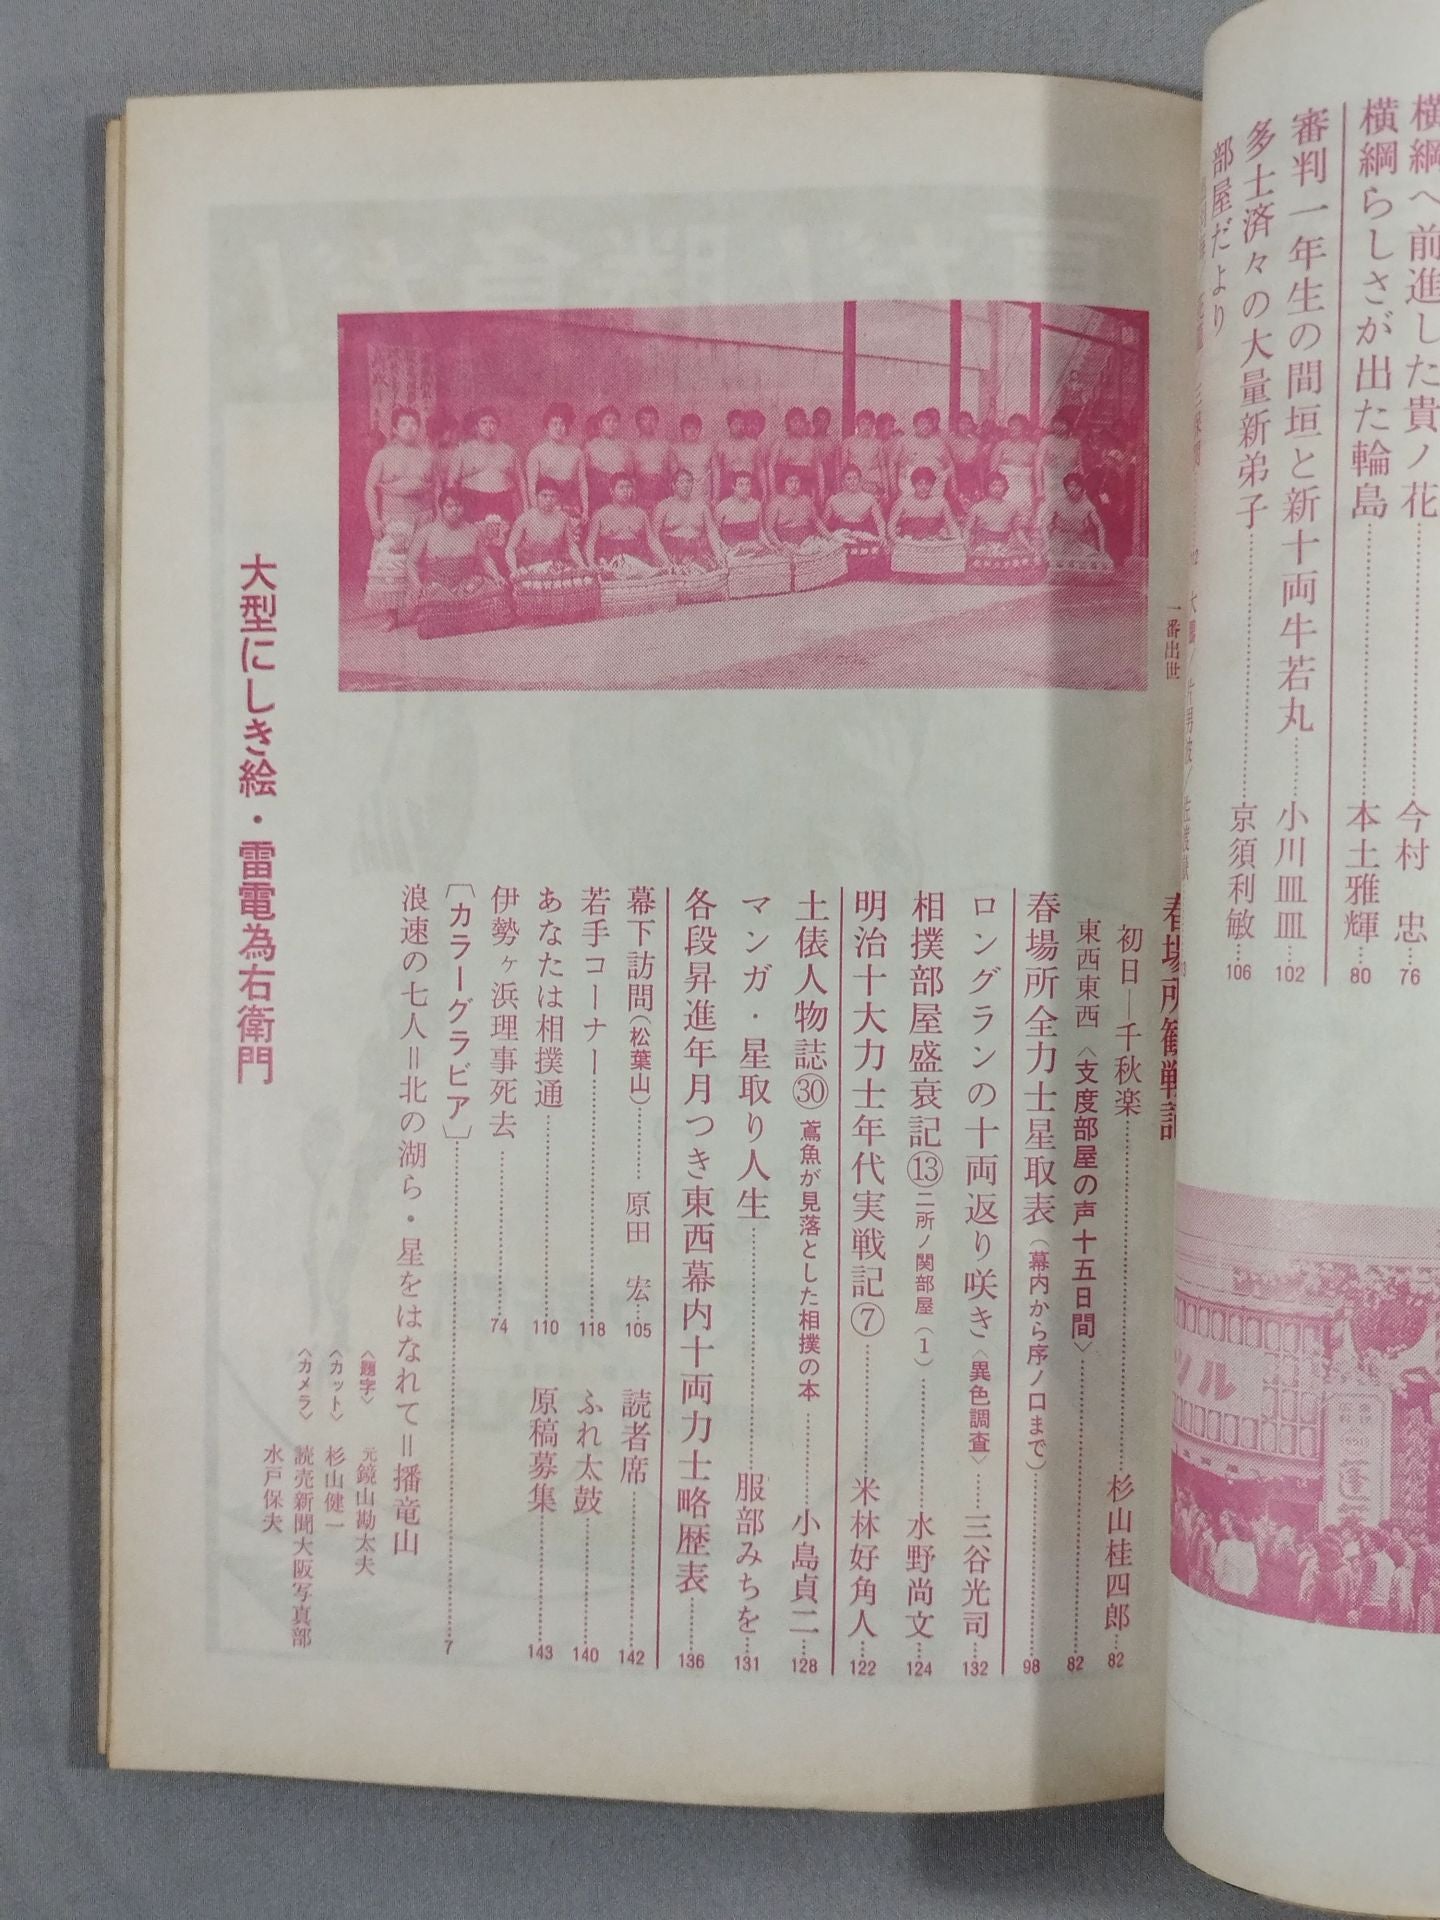 横綱へ前進した貴ノ花……今村　忠…76
横綱らしさが出た輪島……本土雅輝…80
審判一年生の間垣と新十両牛若丸……小川皿皿…102
多士済々の大量新弟子……京須利敏…106
部屋だより
一番出世
春場所観戦記
初日―千秋楽……杉山桂四郎…82
東西東西〈支度部屋の声十五日間〉……82
春場所全力士星取表（幕内から序ノ口まで）……98
ロングランの十両返り咲き〈異色調査〉……三谷光司…132
相撲部屋盛衰記⑬二所ノ関部屋（1）……水野尚文…124
明治十大力士年代実戦記⑦……米林好角人…122
土俵人物誌㉚蔦魚が見落とした相撲の本……小島貞二…128
マンガ・星取り人生……服部みちを…131
各段昇進年月つき東西幕内十両力士略歴表……136
幕下訪問（松葉山）……原田　宏…105
読者席……142
若手コーナー……118
ふれ太鼓……140
あなたは相撲通……110
原稿募集……143
伊勢ヶ浜理事死去……74
［カラーグラビア］……7
浪速の七人＝北の湖ら・星をはなれて＝播竜山
〈題字〉　元鏡山勘太夫
〈カット〉　杉山健一
〈カメラ〉　読売新聞大阪写真部
水戸保夫
大型にしき絵・雷電為右衛門